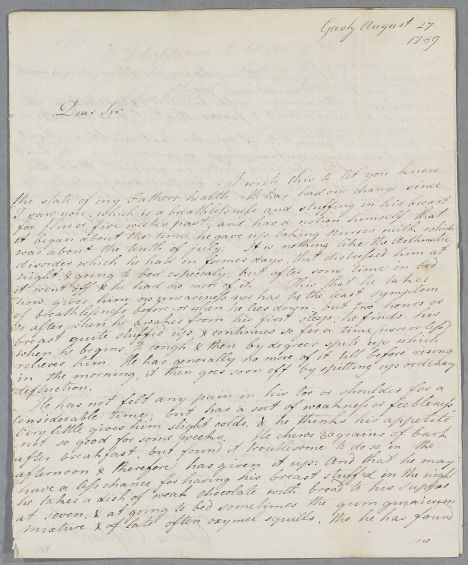 August 27
1789
Dear Sir
I write this to let you know
the state of my Fathers health. He has had one change since
I saw you, which is a breathlessness and stuffing in his breast
for four or five weeks past, and has a notion himself that
it began about the time he gave up taking Nurses milk, which
was about the tenth of july. It is nothing like the Asthmatic
disorder which he had in former days, that distressed him at
night & going to bed especialy, but after some time in bed
it went off & he had no more of it. This that he takes
now, gives him no uneasiness nor has he the least symptom
of breathlessness before, or when he lies down, but two hours or
so after, when he awakes from his first sleep, he finds his
breast quite stuffed up, & continues so for a time, more or less,
when he begins to cough & then by degrees spits up which
relieves him. He has generally no more of it till before rising
in the morning, it then goes soon off by spitting up ordinary
defluction.
He has not felt any pain in his toe or shoulder for a
considerable time, but has a sort of weakness or feebleness.
Very little gives him slight colds, & he thinks his appetite
not so good for some weeks. He chews graines of bark
after breakfast, but found it troublesome to do so in the
afternoon & therefore has given it up. And that he may
have a less chance for having his breast stuff'd in the night
he takes a dish of weak chocolate with bread to his supper
at seven, & at going to bed sometimes the gum guaiacum
mixture & of late often oxymel squills, tho he has found
no